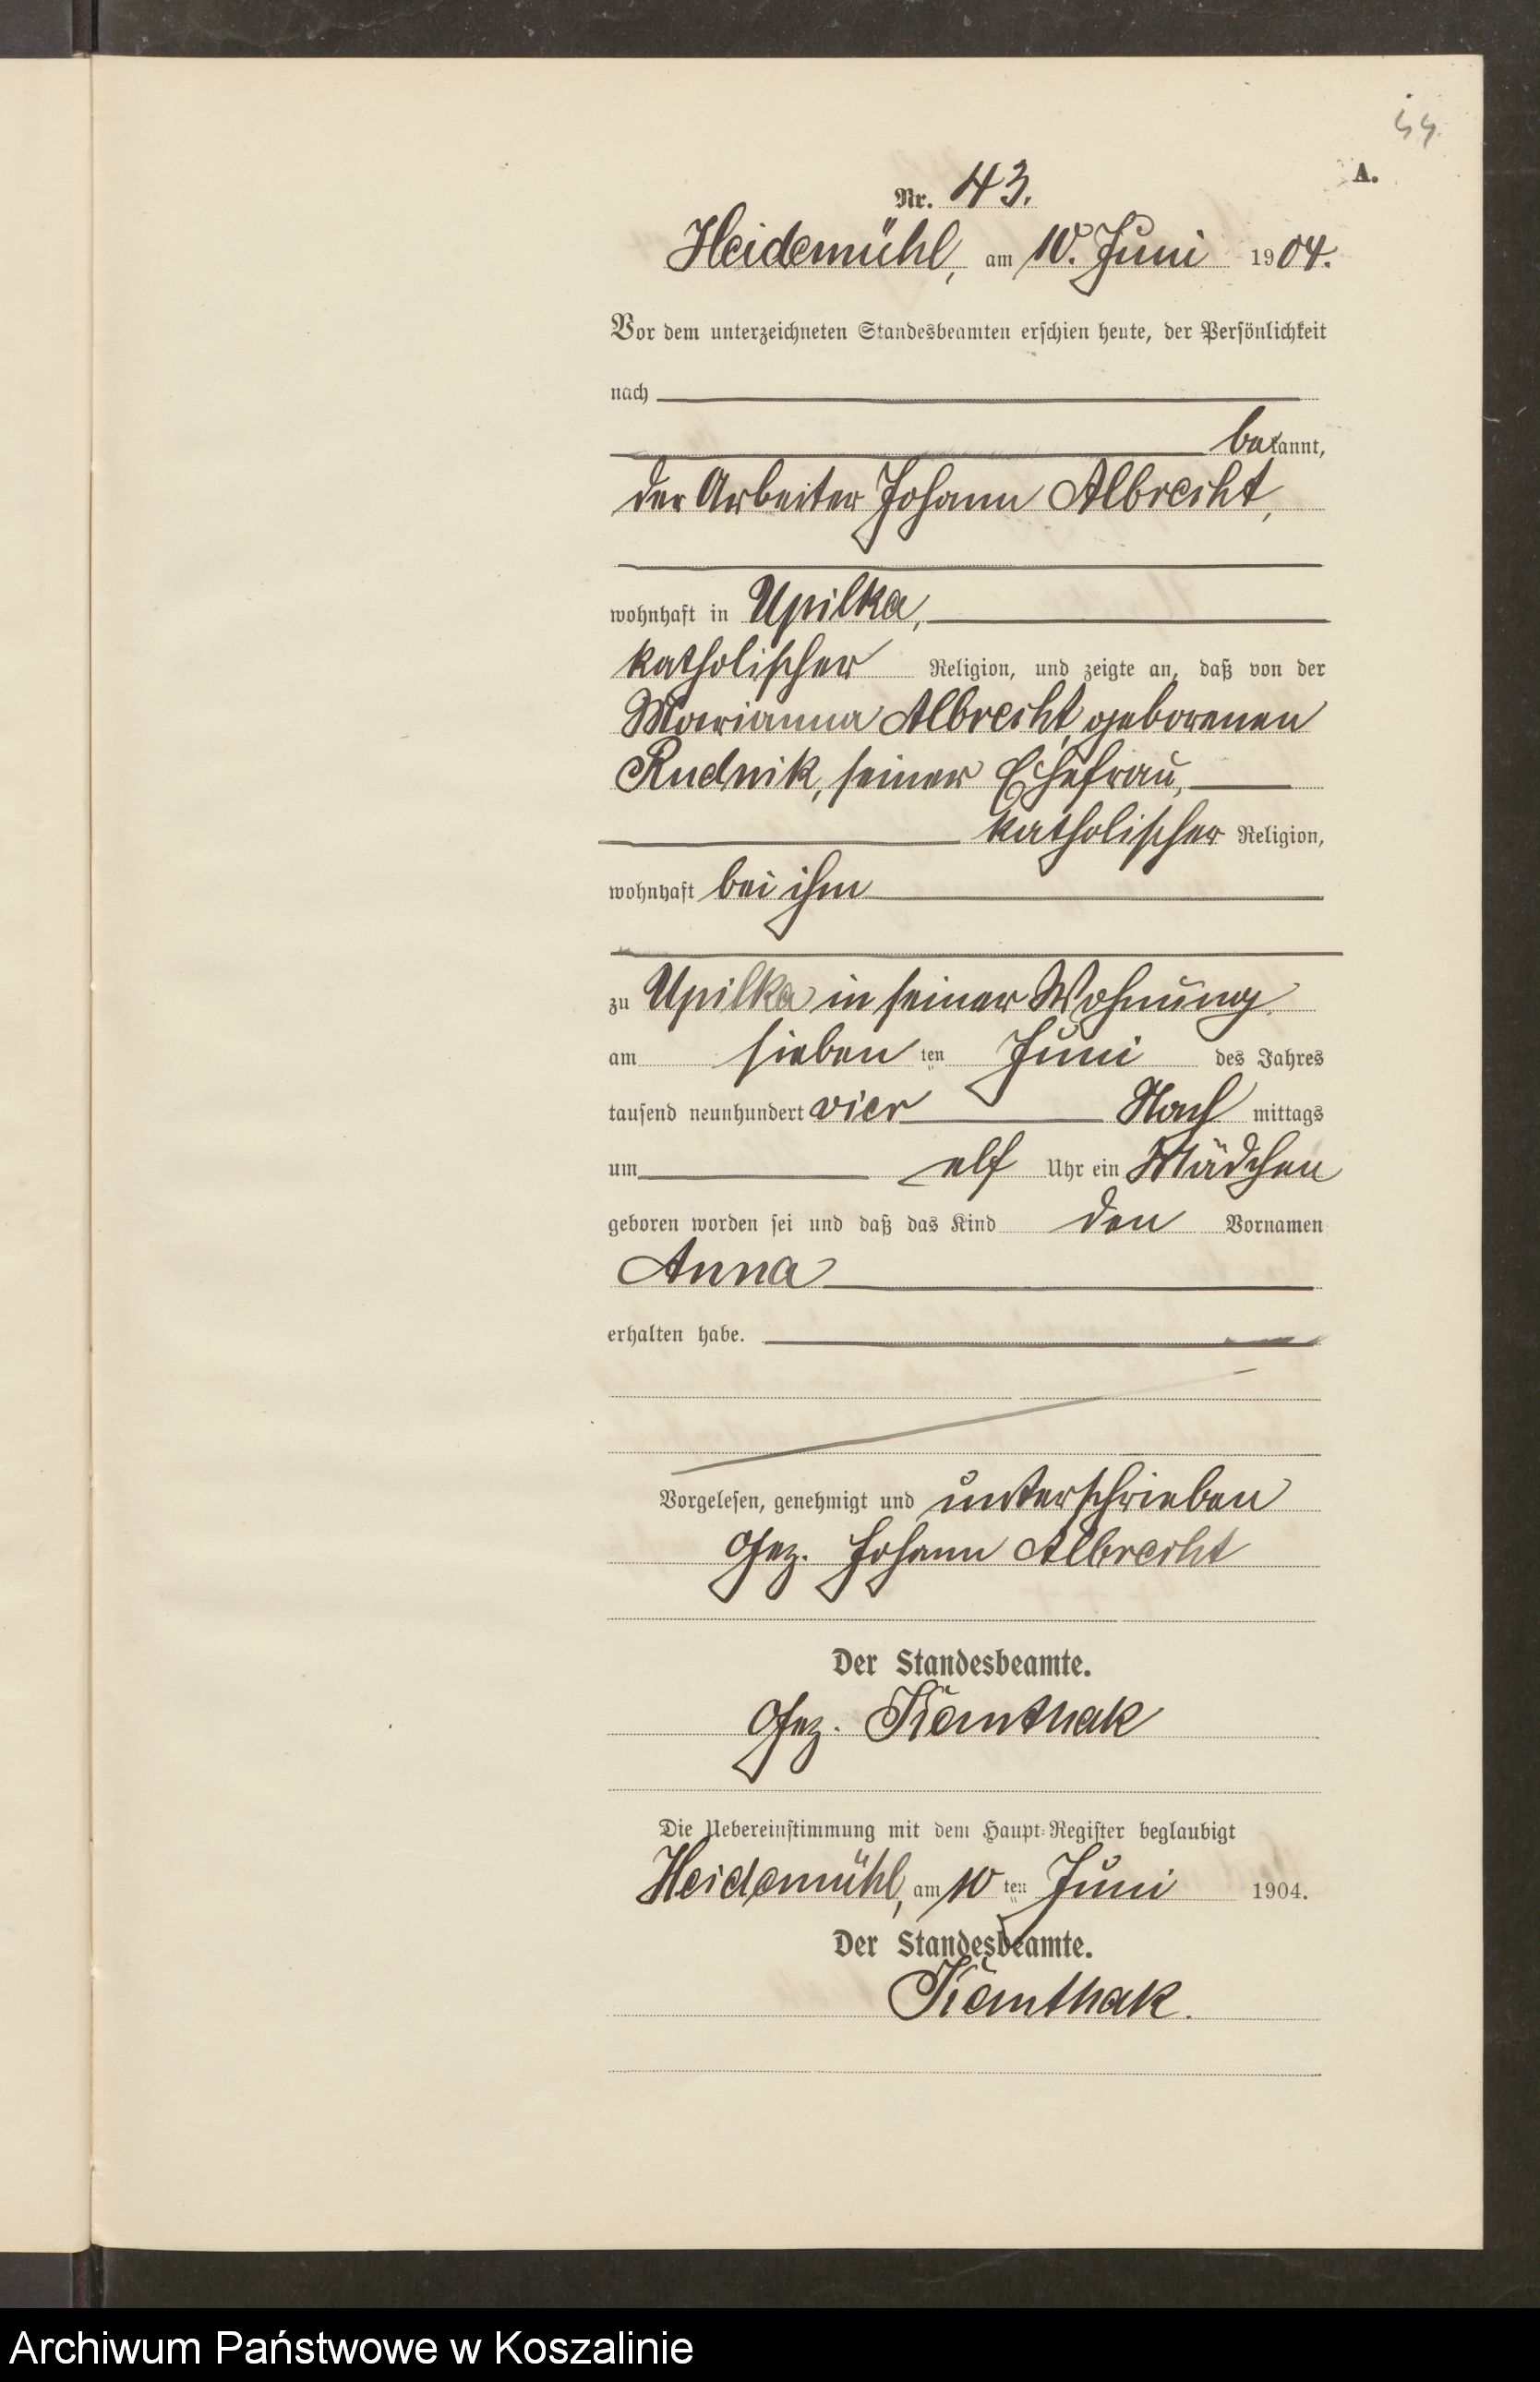 44.
A.
Nr. 43.
Heidemühl, am 10. Juni 1904.
Vor dem unterzeichneten Standesbeamten erschien heute, der Persönlichkeit
nach
bekannt,
der Arbeiter Johann Albrecht,
wohnhaft in Upilka,
katholischer Religion, und zeigte an, daß von der
Marianna Albrecht geborenen
Rudnik, seiner Ehefrau,
katholischer Religion,
wohnhaft bei ihm
zu Upilka in seiner Wohnung
am sieben ten Juni des Jahres
tausend neunhundert vier Nach mittags
um elf Uhr ein Mädchen
geboren worden sei und daß das Kind den Vornamen
Anna
erhalten habe.
Vorgelesen, genehmigt und unterschrieben
Gez. Johann Albrecht
Der Standesbeamte.
Gez.
Die Uebereinstimmung mit dem Haupt-Register beglaubigt
Heidemühl, am 10 ten Juni 1904.
Der Standesbeamte.
Archiwum Państwowe w Koszalinie